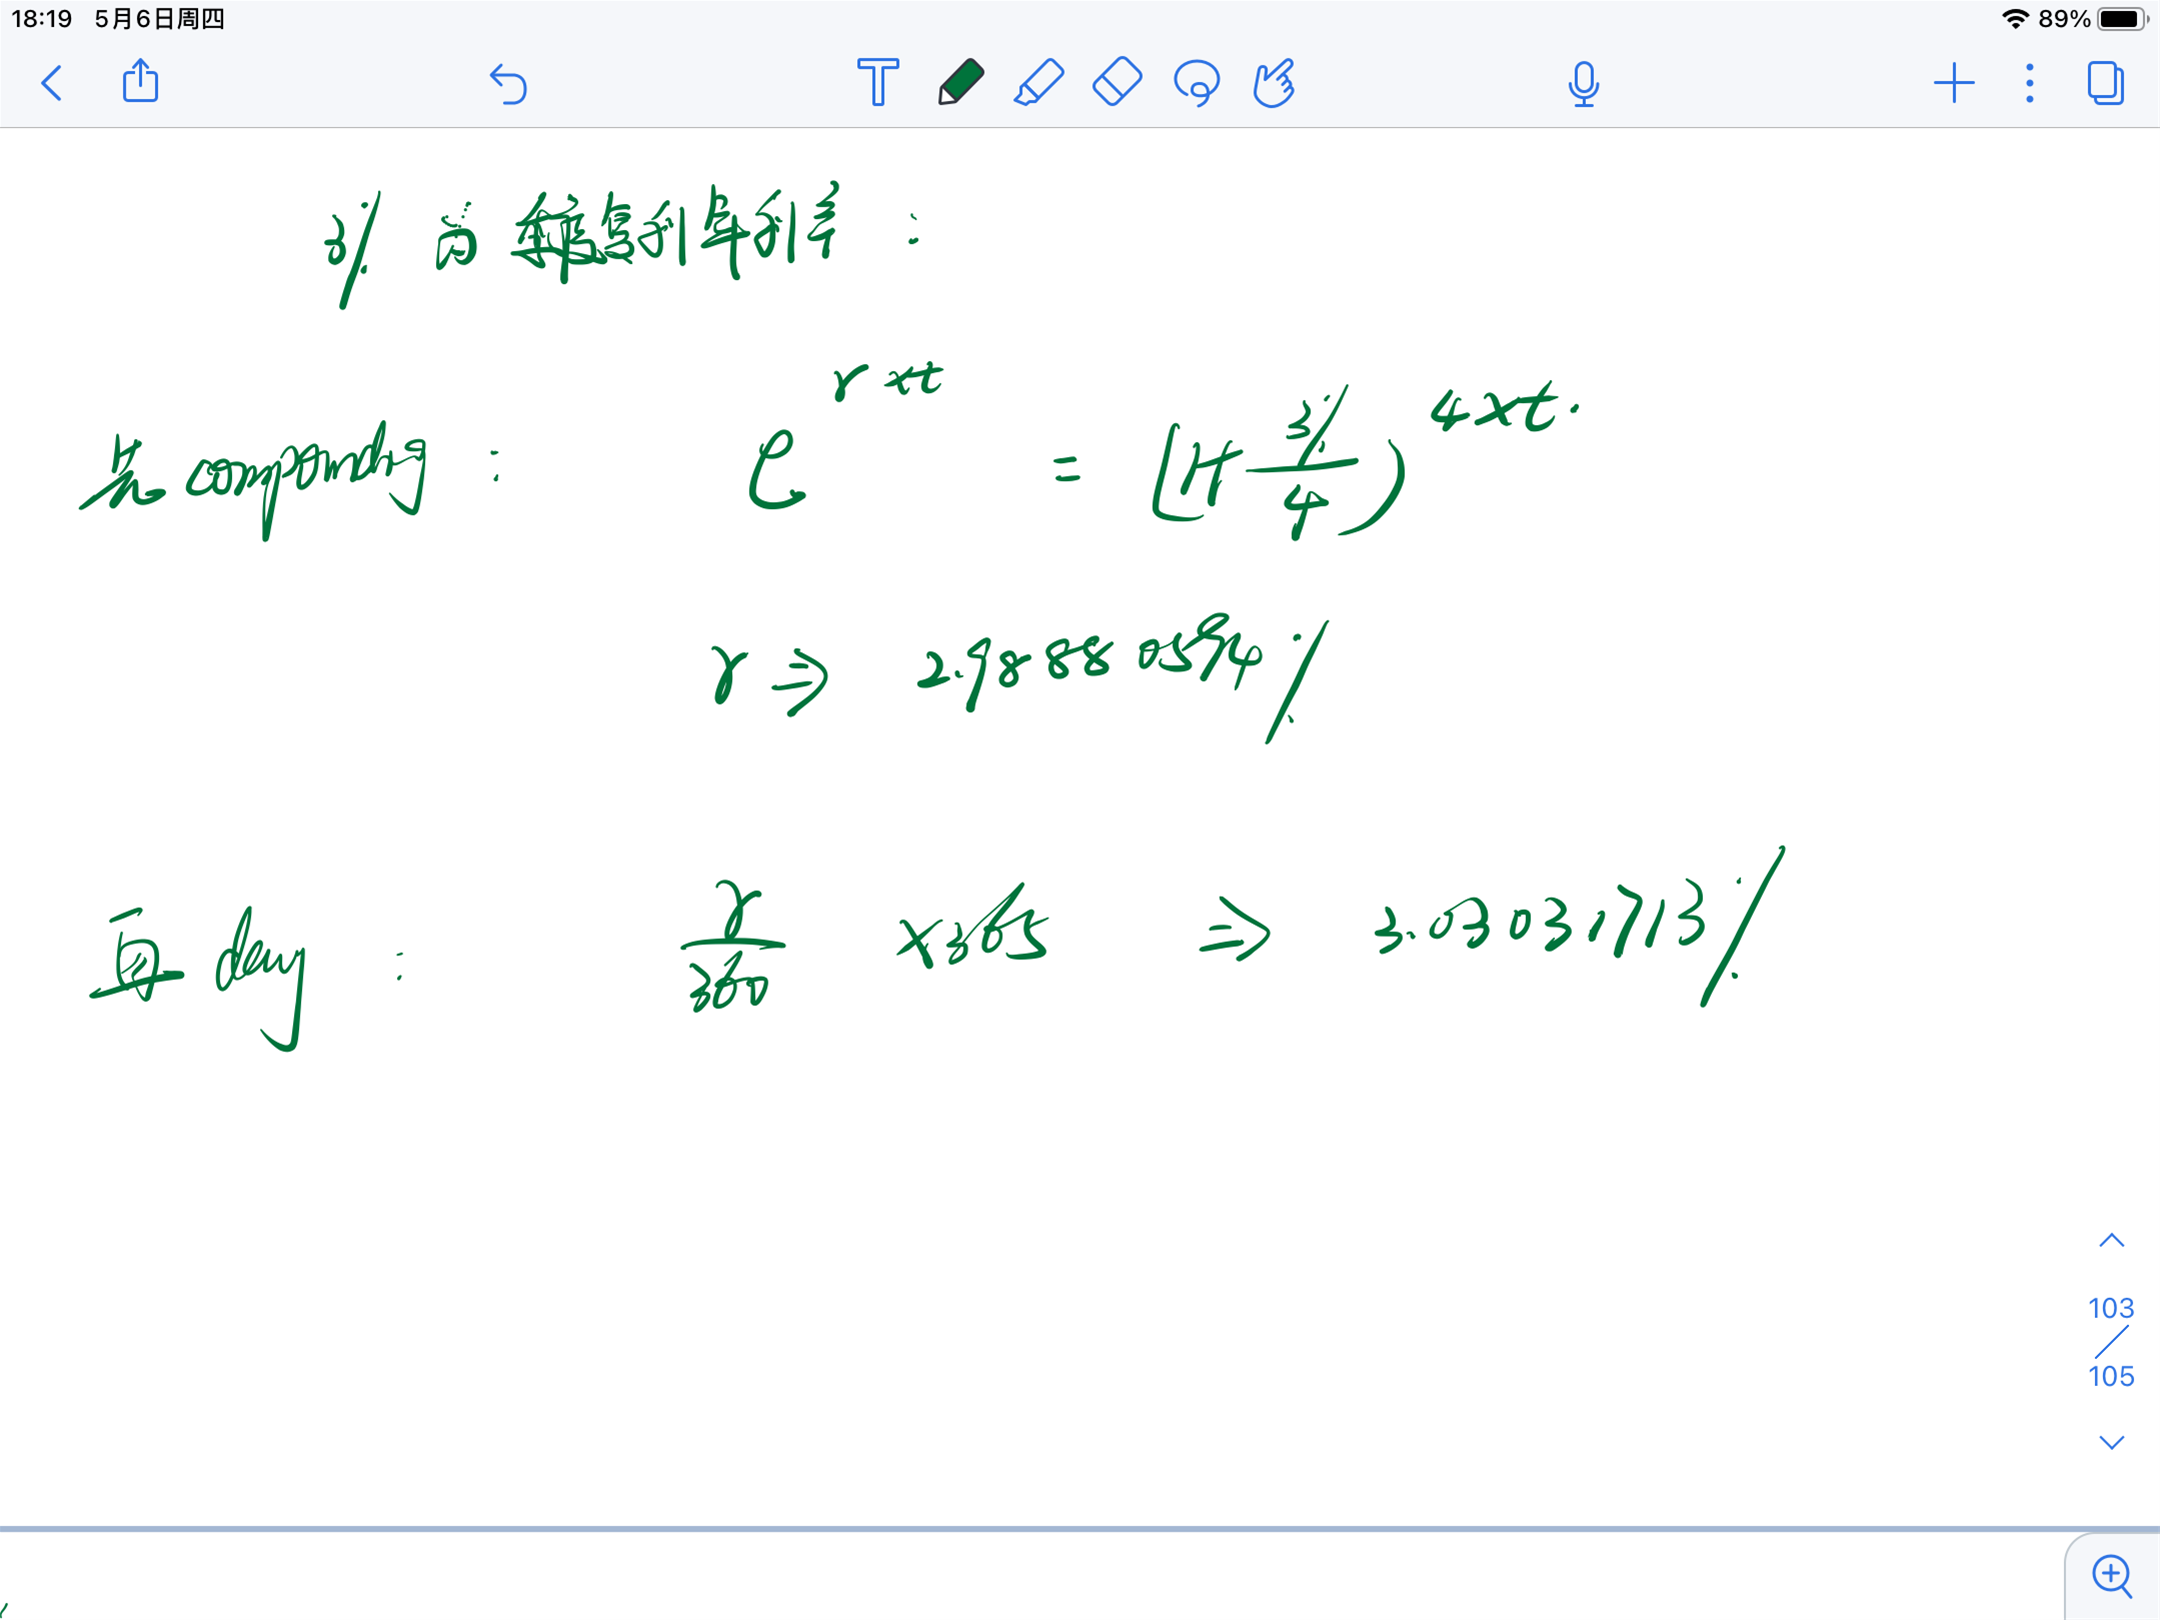 18:19 5月6日周四 89%
3% 为 複利年利率:
先 compounding: e^{r×t} = (1+3%/4)^{4×t}.
r ⇒ 2.98880594%
再 day: r/360 ×365 ⇒ 3.030317713%
103
/
105